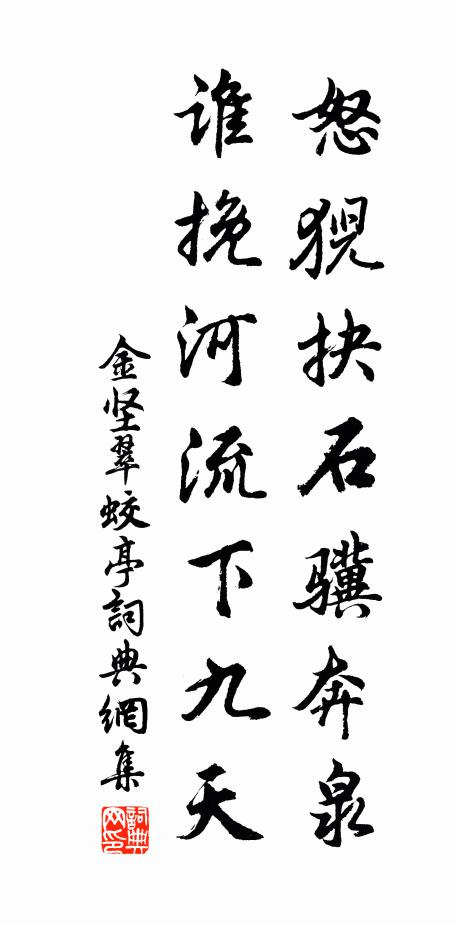 怒猊抉石骥奔泉
谁挽河流下九天
金坚翠蛟亭詞典網集
詞典网印